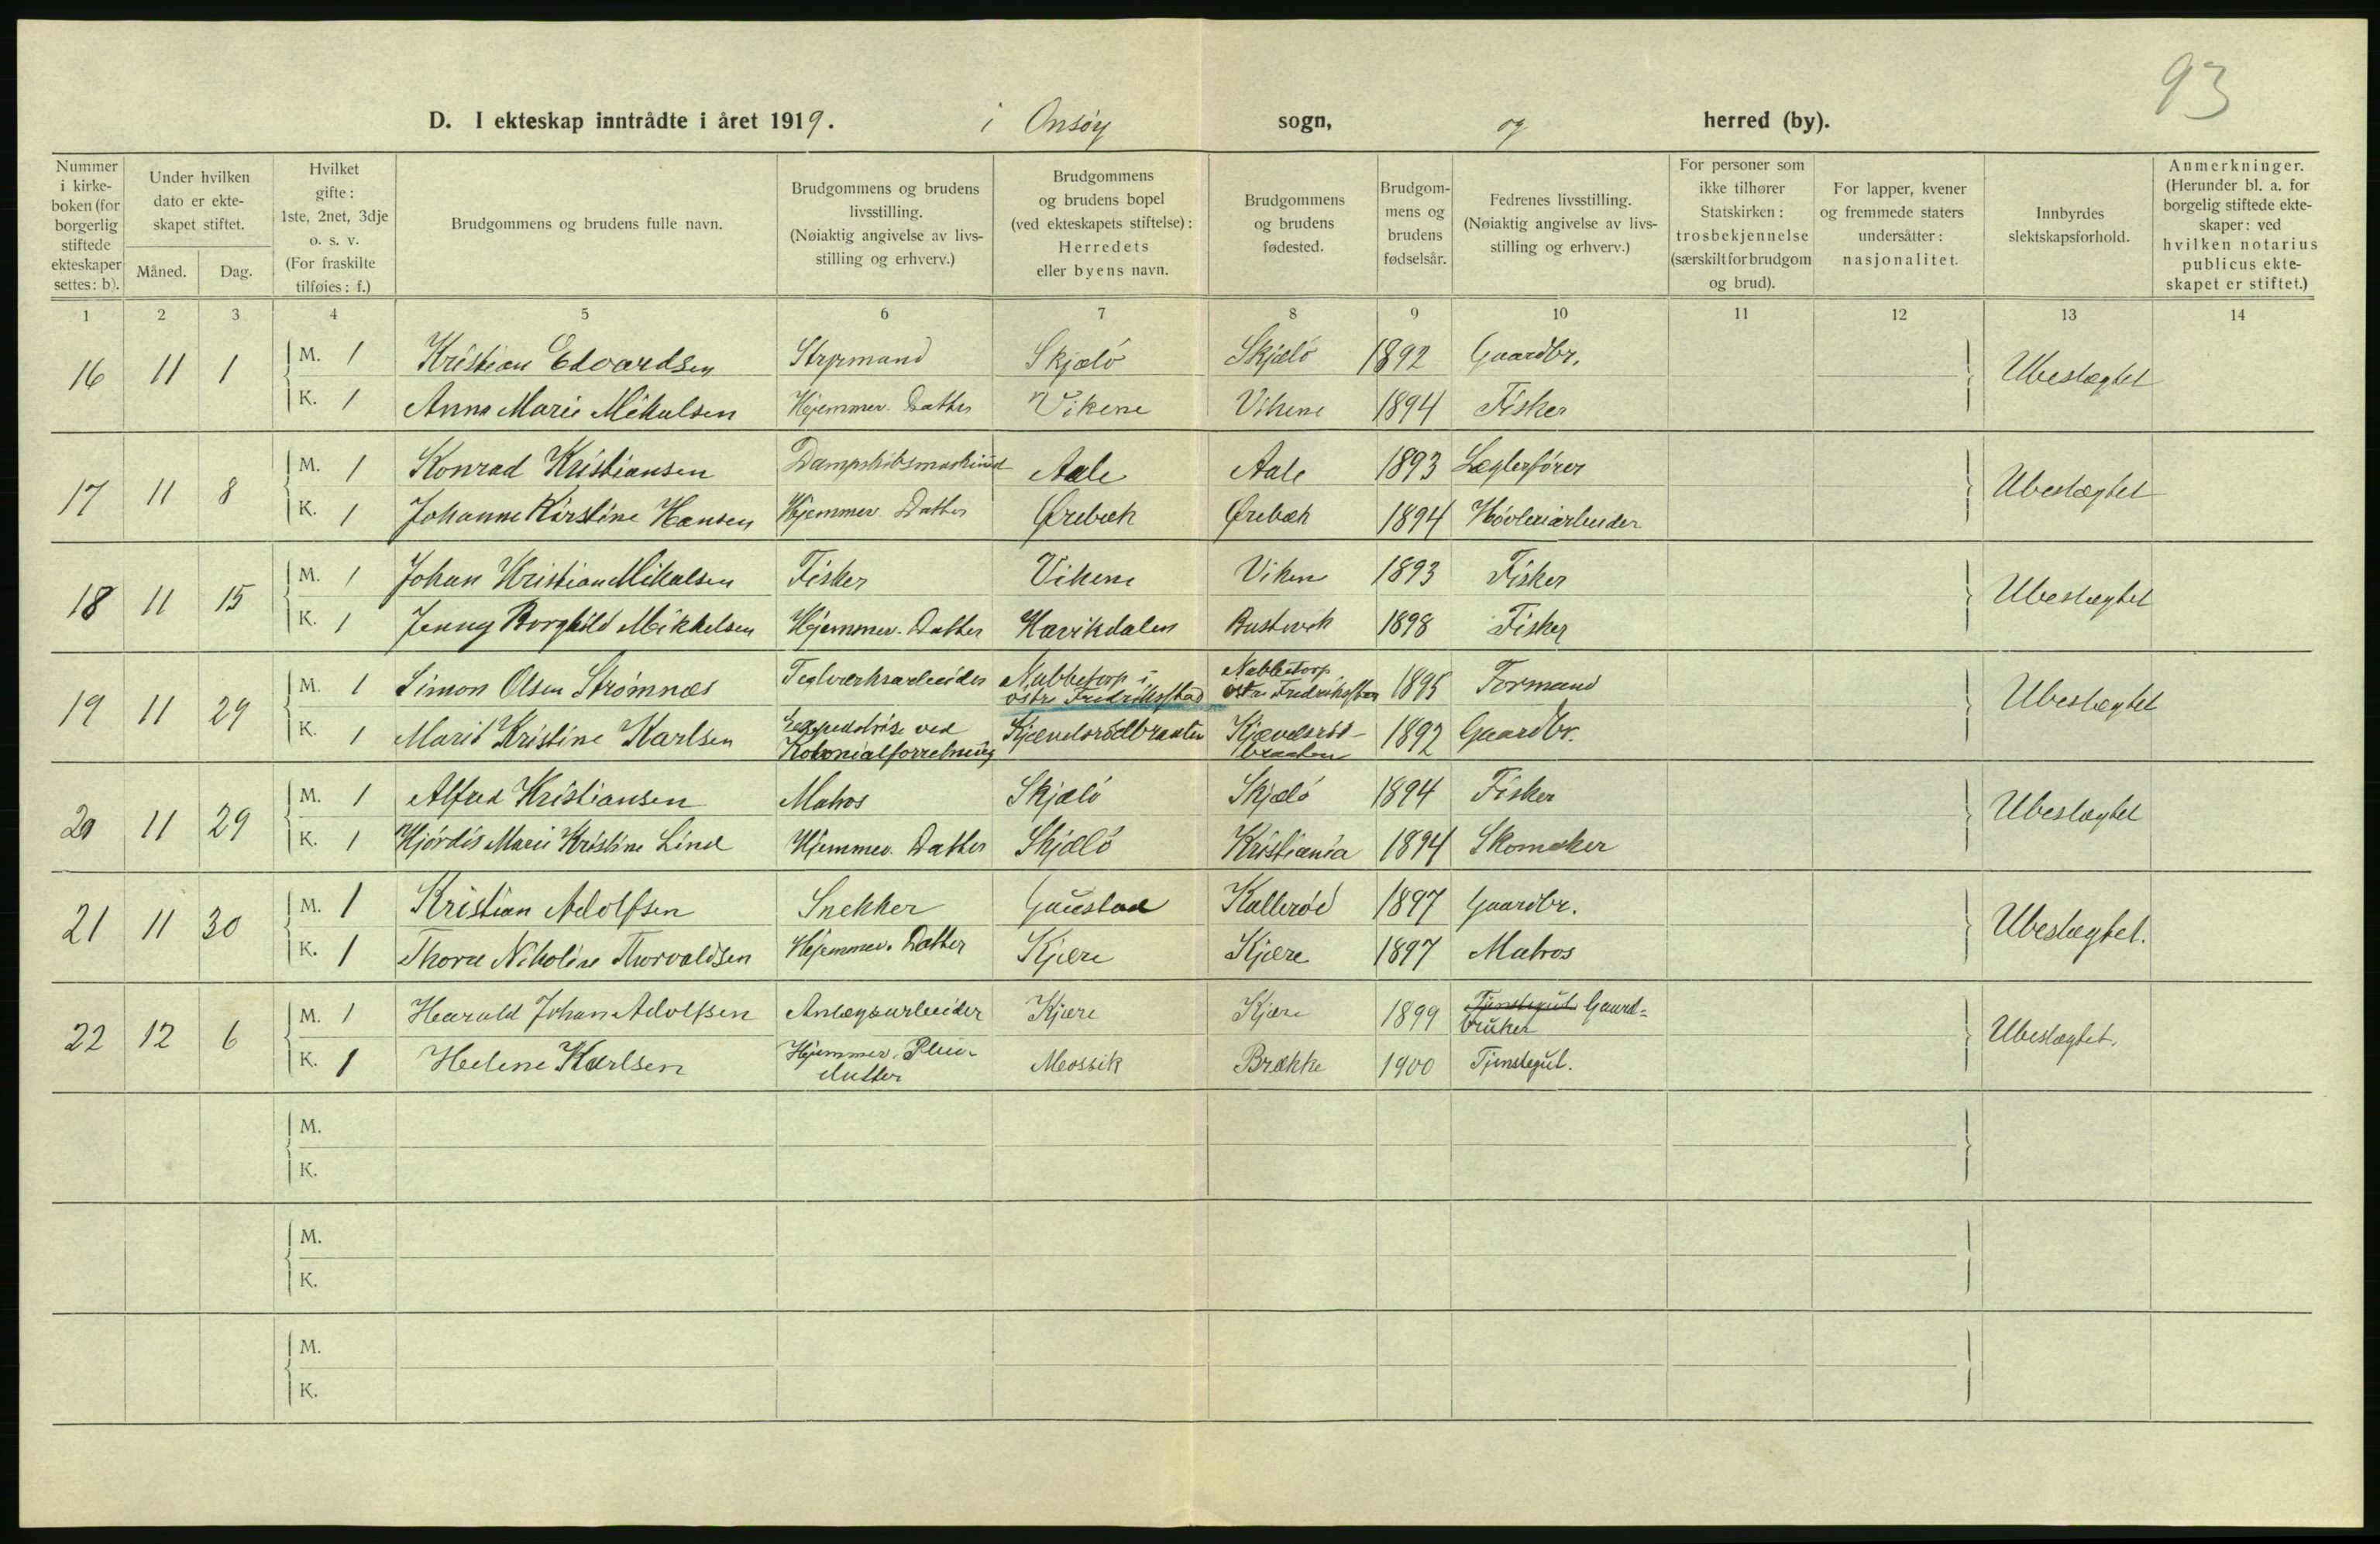 93
D. I ekteskap inntrådte i året 1919. i Onsøy sogn, og herred (by).
Nummer i kirkeboken (for borgerlig stiftede ekteskaper settes: b).
Under hvilken dato er ekteskapet stiftet.
Måned. Dag.
Hvilket gifte: 1ste, 2net, 3dje o. s. v. (For fraskilte tilføies: f.)
Brudgommens og brudens fulle navn.
Brudgommens og brudens livsstilling. (Nøiaktig angivelse av livsstilling og erhverv.)
Brudgommens og brudens bopel (ved ekteskapets stiftelse): Herredets eller byens navn.
Brudgommens og brudens fødested.
Brudgommens og brudens fødselsår.
Fedrenes livsstilling. (Nøiaktig angivelse av livsstilling og erhverv.)
For personer som ikke tilhører Statskirken: trosbekjennelse (særskilt for brudgom og brud).
For lapper, kvener og fremmede staters undersåtter: nasjonalitet.
Innbyrdes slektskapsforhold.
Anmerkninger. (Herunder bl. a. for borgelig stiftede ekteskaper: ved hvilken notarius publicus ekteskapet er stiftet.)
1 2 3 4 5 6 7 8 9 10 11 12 13 14
16 11 1 M. 1 Kristian Edvardsen Styrmand Skjælö Skjælö 1892 Gaardbr. Ubeslægtet
K. 1 Anna Marie Mikalsen Hjemmev. Datter Vikene Vikene 1894 Fisker
17 11 8 M. 1 Konrad Kristiansen Aale Aale 1893 Lægterfører Ubeslægtet
K. 1 Johanne Kirstine Hansen Hjemmev. Datter Ørebæk Ørebæk 1894 Høvleriarbeider
18 11 15 M. 1 Johan Kristian Mikalsen Fisker Vikene Viken 1893 Fisker Ubeslægtet
K. 1 Jenny Borghild Mikkelsen Hjemmev. Datter Havikdalen 1898 Fisker
19 11 29 M. 1 Simon Olsen Strømnæs Teglverksarbeider Nabbetorp i östre Fredrikstad Nabbetorp östre Fredrikstad 1895 Formand Ubeslægtet
K. 1 Marit Kristine Karlsen ved Kolonialforretning Kjævelsrödbraaten Kjævelsröd-braaten 1892 Gaardbr.
20 11 29 M. 1 Alfred Kristiansen Matros Skjælö Skjælö 1894 Fisker Ubeslægtet
K. 1 Hjördis Marie Kristine Lind Hjemmev. Datter Skjælö Kristiania 1894 Skomaker
21 11 30 M. 1 Kristian Adolfsen Snekker Gaustad Kallerød 1897 Gaardbr. Ubeslægtet.
K. 1 Thora Nikoline Thorvaldsen Hjemmev. Datter Kjære Kjære 1897 Matros
22 12 6 M. 1 Harald Johan Adolfsen Anlægsarbeider Kjære Kjære 1899 Tjenstegut Gaard=bruker Ubeslægtet.
K. 1 Helene Karlsen Hjemmev. Pleiedatter Mossik Brække 1900 Tjenstegut.
M.
K.
M.
K.
M.
K.